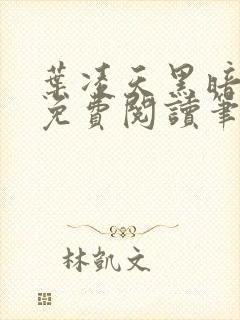 葉凌天黑暗
免費閱讀筆
林凱文